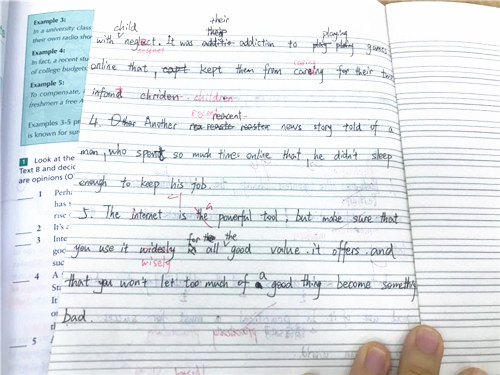 Example 3:
In a university class
their own radio show
Example 4:
In fact, a recent stu
of college budgets
Example 5:
To compensate,
freshmen a free A
Examples 3-5 pe
is known for sur
1 Look at the
Text B and decid
are opinions (O
1 Perh
has
rise
2 It's
3 Inte
goo
suc
4 A
St
It
of
th
5
child their
with neglect. It was addictio addiction to play playing games
neglect playing
online that, kept them from careing for their two
caring
infand chridren children
recent reacent
4. Other Another news story told of a
man, who spent so much time online that, he didn't sleep
enough to keep his job.
5. The internet is the powerful tool, but make sure that
a
for the the
you use it widesly all good value. it offers. and
wisely
that you won't let too much of a good thing become something
a
bad.